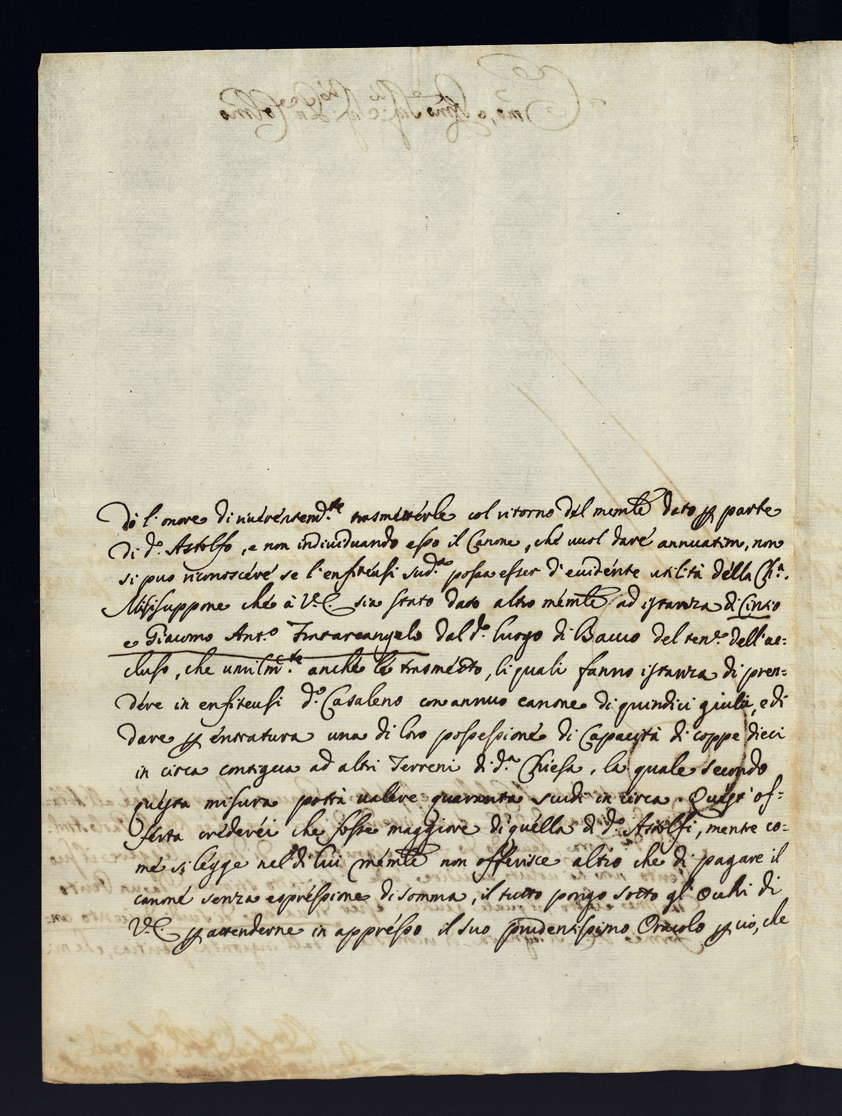 Dò l'onore di riverentem.te trasmetterle col ritorno dal mem.le dato p parte
di d.o Astolfo, e non individuando esso il Canone, che vuol dare annuatim, non
si puo riconoscere se l'enfiteusi sud.a possa esser d'evidente utilità della Ch.a.
Mi si suppone che à V.E. sia stato dato altro mem.le ad istanza di Cinzio
e Giacomo Ant.o Fratarcangelo dal d.o luogo di Bauco del ten.e dell'ac-
cluso, che umilm.te anche le trasmetto, li quali fanno istanza di pren-
dere in enfiteusi d.o Casaleno con annuo canone di quindici giulii, e di
dare p entratura una di loro possessione di Capacità di coppe dieci
in circa contigua ad altri Terreni di d.a Chiesa, la quale secondo
questa misura potrà valere quaranta scudi in circa. Quest'of-
ferta crederei che fosse maggiore di quella di d.o Astolfi, mentre co-
me si legge nel di lui mem.le non offerisce altro che di pagare il
canone senza espressione di somma, il tutto pongo sotto gl'Occhi di
V.E. p attenderne in appresso il suo prudentissimo Oracolo p ciò, che